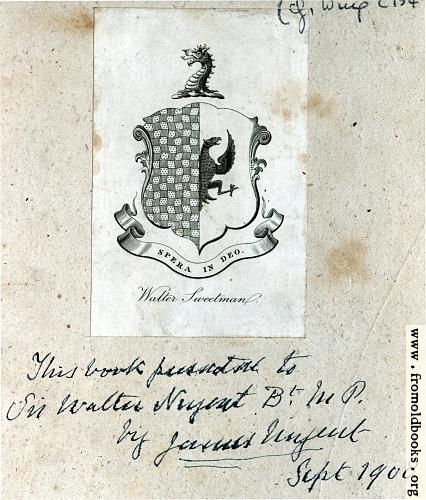 SPERA IN DEO.
Walter Sweetman.
This book presented to
Sir Walter Nugent Bt. M.P.
by James Nugent
Sept 190
www.fromoldbooks.org